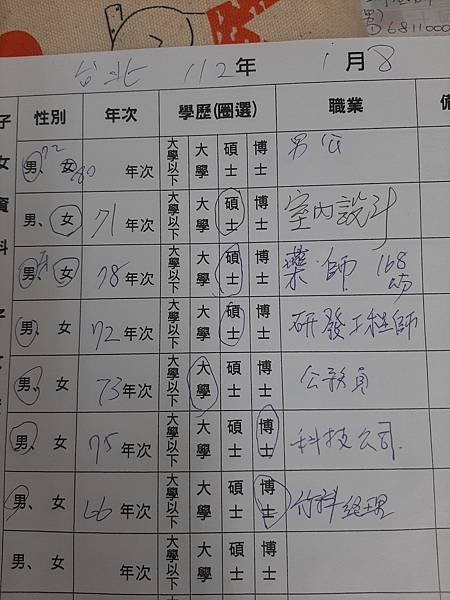 男
6811000
台北 112年 1月8
子女資料 性別 年次 學歷(圈選) 職業 備
男、女 72 80 年次 大學以下 大學 碩士 博士 男公
男、女 71 年次 大學以下 大學 碩士 博士 室內設計
男、女 78 年次 大學以下 大學 碩士 博士 藥師 168
男、女 72 年次 大學以下 大學 碩士 博士 研發工程師
男、女 73 年次 大學以下 大學 碩士 博士 公教員
男、女 75 年次 大學以下 大學 碩士 博士 科技公司.
男、女 66 年次 大學以下 大學 碩士 博士 竹科經理
男、女 年次 大學以下 大學 碩士 博士